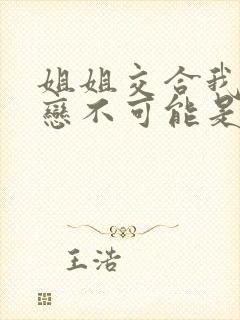 姐姐交合我
戀不可能是
王浩